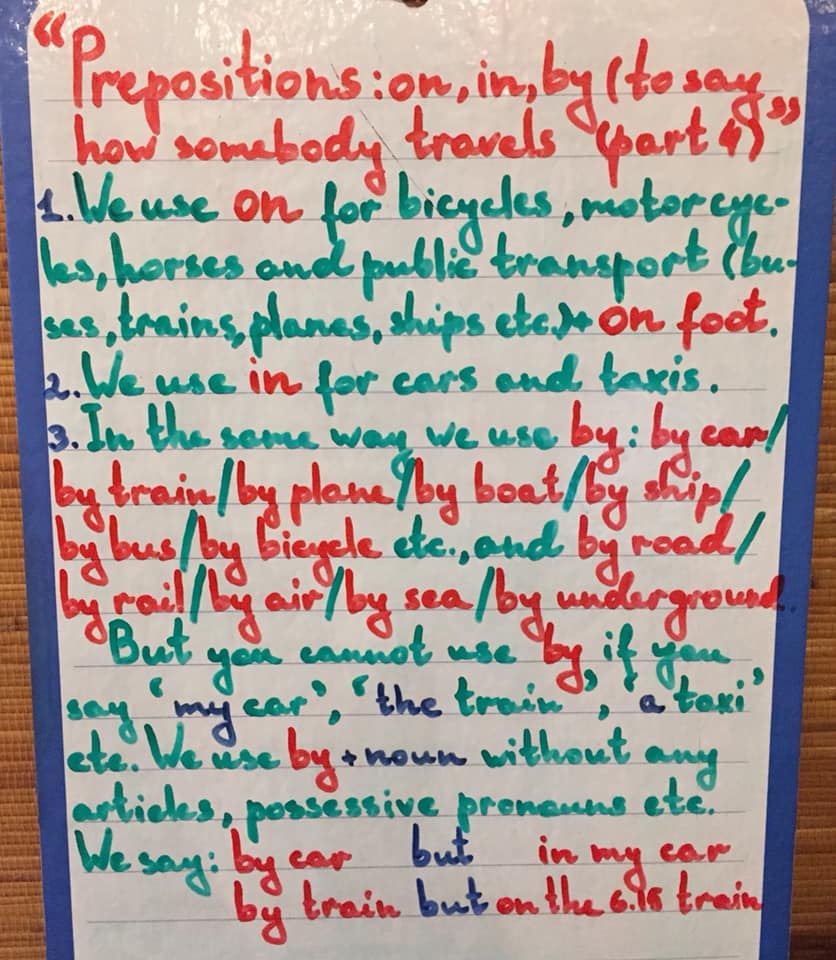 “Prepositions: on, in, by (to say
how somebody travels (part 4)”
1. We use on for bicycles, motorcyc-
les, horses and public transport (bu-
ses, trains, planes, ships etc.)+ on foot.
2. We use in for cars and taxis.
3. In the same way we use by: by car/
by train/by plane/by boat/by ship/
by bus/by bicycle etc., and by road/
by rail/by air/by sea/by underground.
But you cannot use by, if you
say ‘my car’, ‘the train’, ‘a taxi’
etc. We use by + noun without any
articles, possessive pronouns etc.
We say: by car but in my car
by train but on the 6.15 train